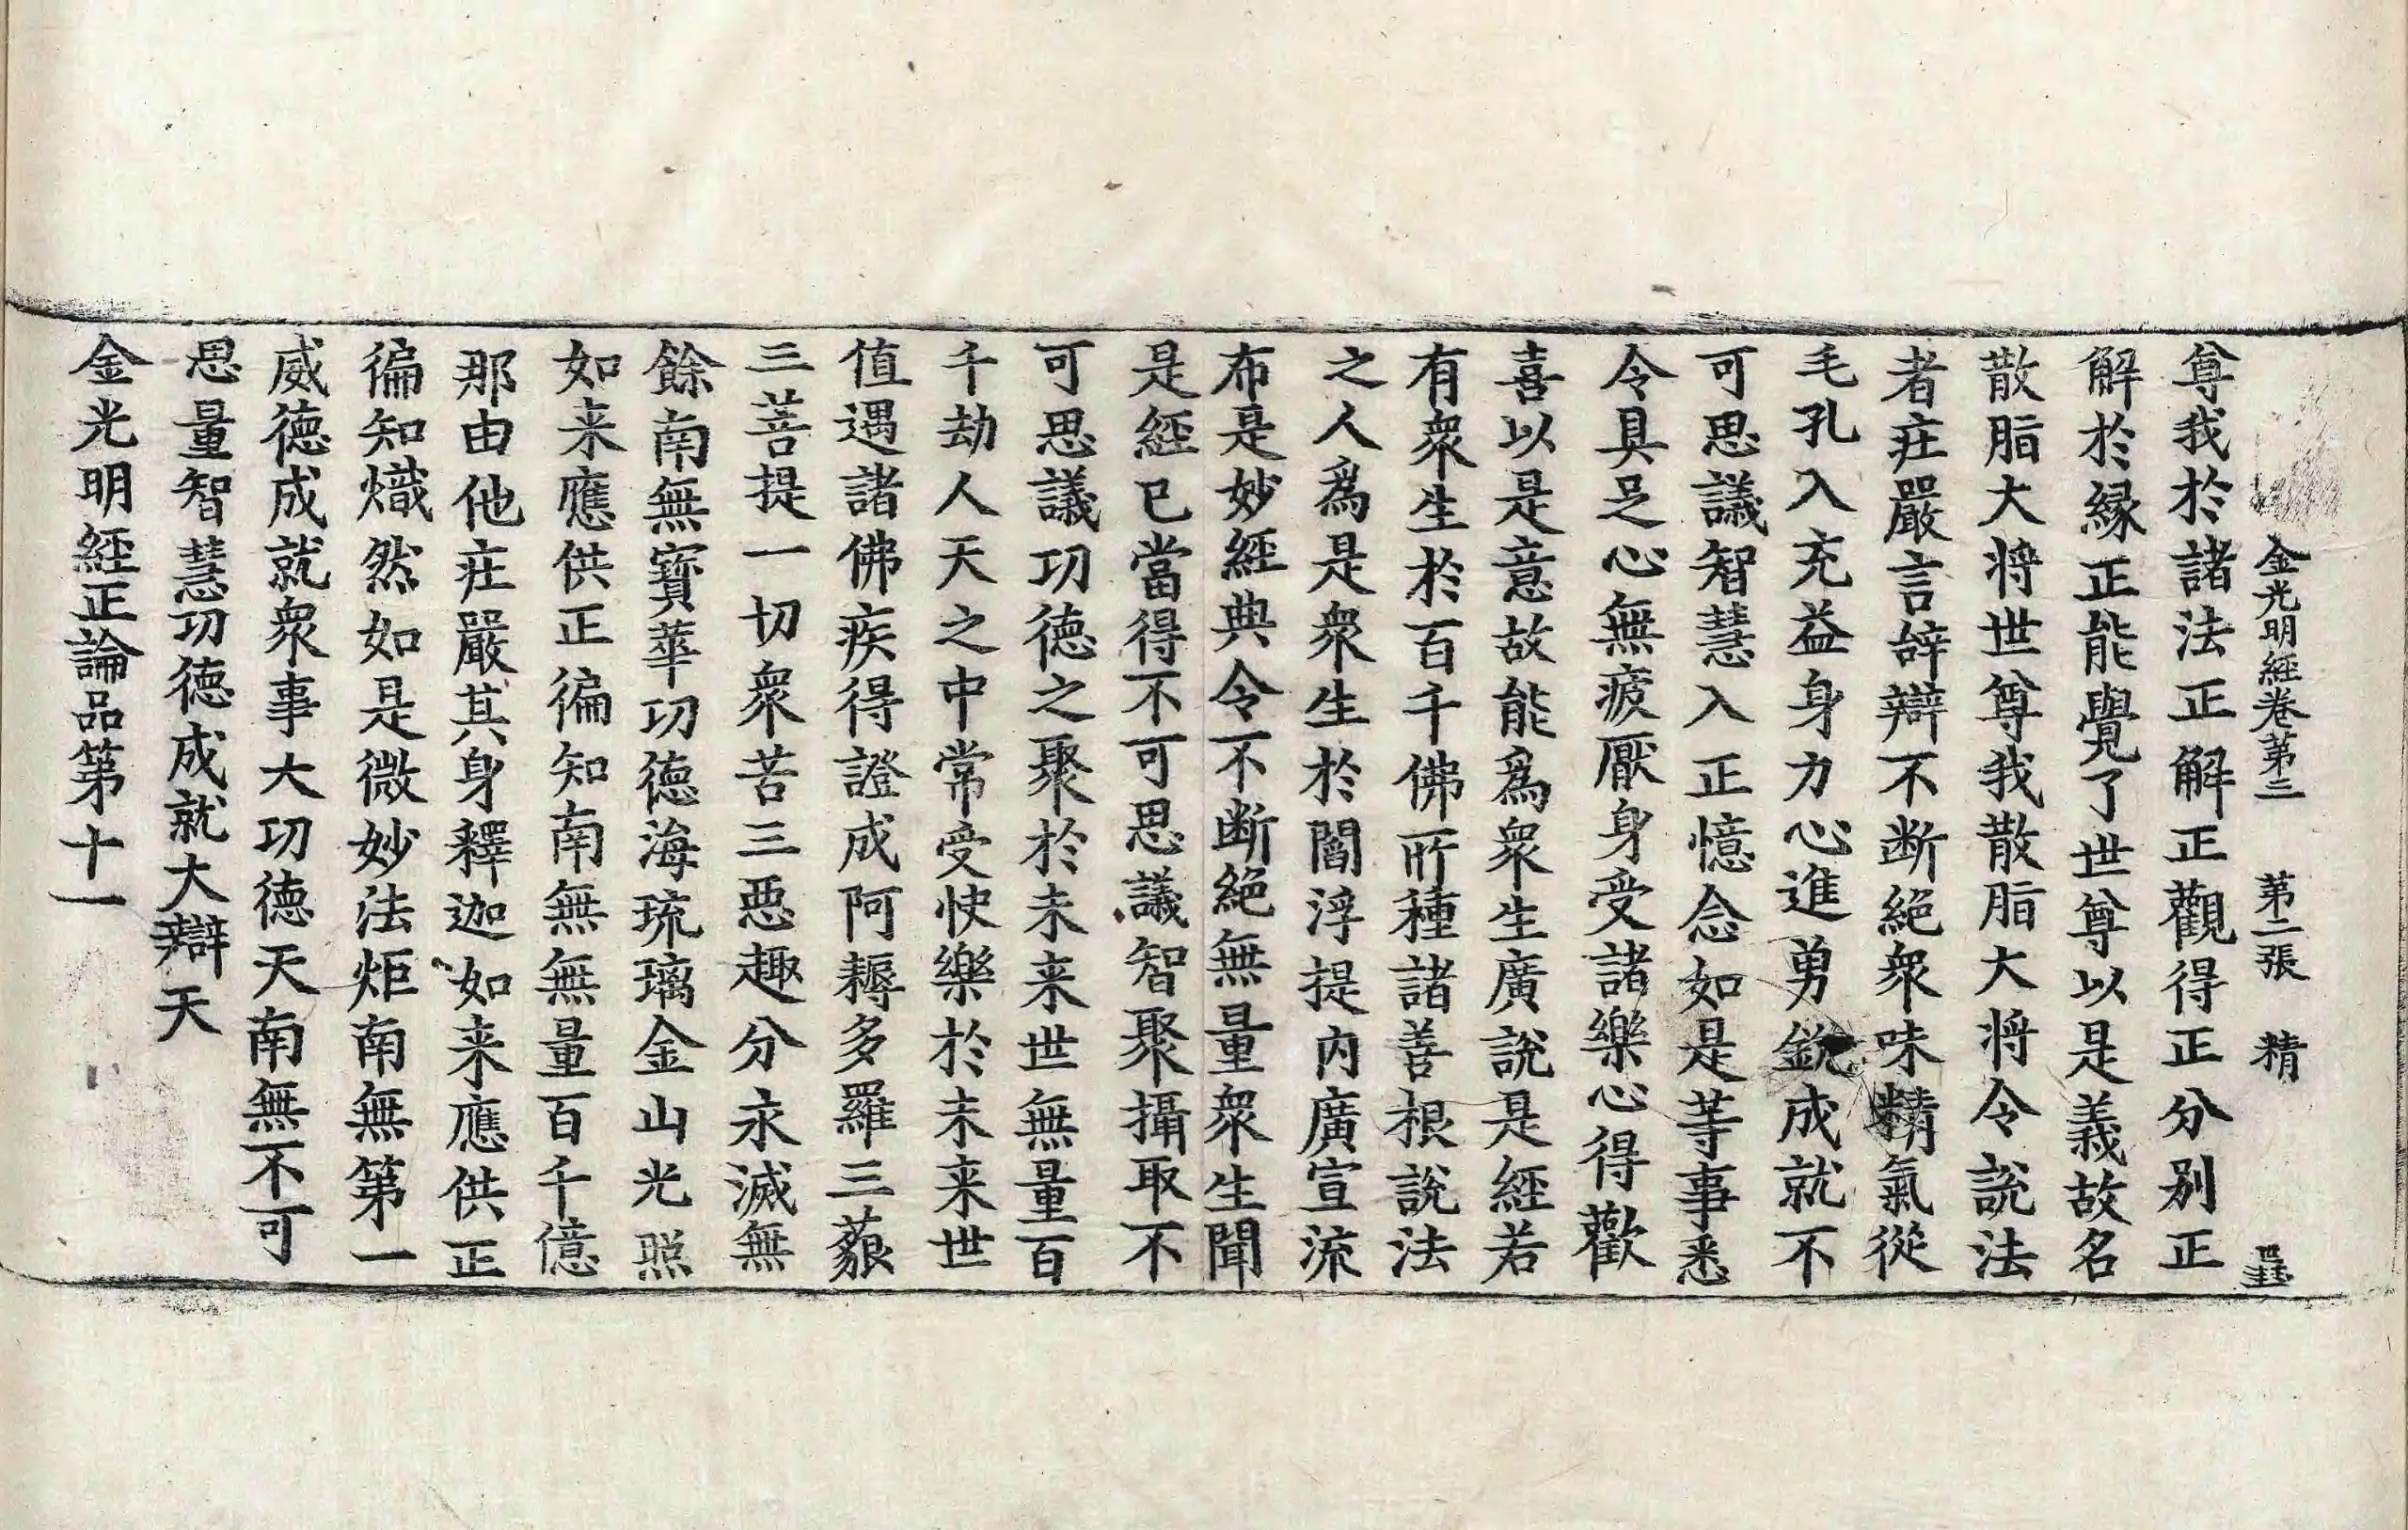 金光明經卷第三　第二張　精
尊我於諸法正解正觀得正分别正
解於縁正能覺了世尊以是義故名
散脂大将世尊我散脂大将令說法
者莊嚴言辝辯不断絶衆味精氣從
毛孔入充益身力心進勇銳成就不
可思議智慧入正憶念如是等事悉
令具足心無疲厭身受諸樂心得歡
喜以是意故能爲衆生廣說是經若
有衆生於百千佛所種諸善根說法
之人爲是衆生於閻浮提内廣宣流
布是妙經典令不断絶無量衆生聞
是經已當得不可思議智聚攝取不
可思議功德之聚於未来世無量百
千劫人天之中常受快樂於未来世
值遇諸佛疾得證成阿耨多羅三藐
三菩提一切衆苦三惡趣分永滅無
餘南無寳華功德海琉璃金山光照
如来應供正徧知南無無量百千億
那由他莊嚴其身釋迦如来應供正
徧知熾然如是微妙法炬南無第一
威德成就衆事大功德天南無不可
思量智慧功德成就大辯天
金光明經正論品第十一